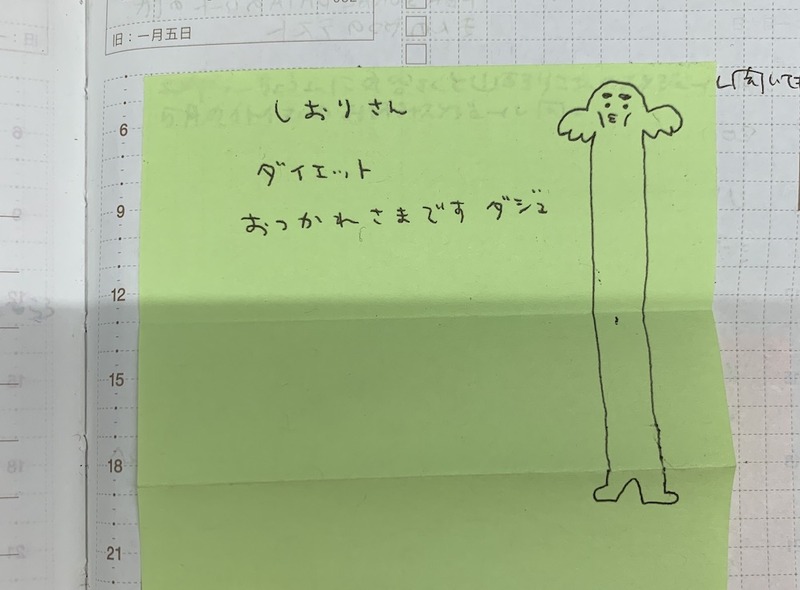 旧：一月五日
しおりさん
6
ダイエット
9
おつかれさまです ダジュ
12
15
18
21